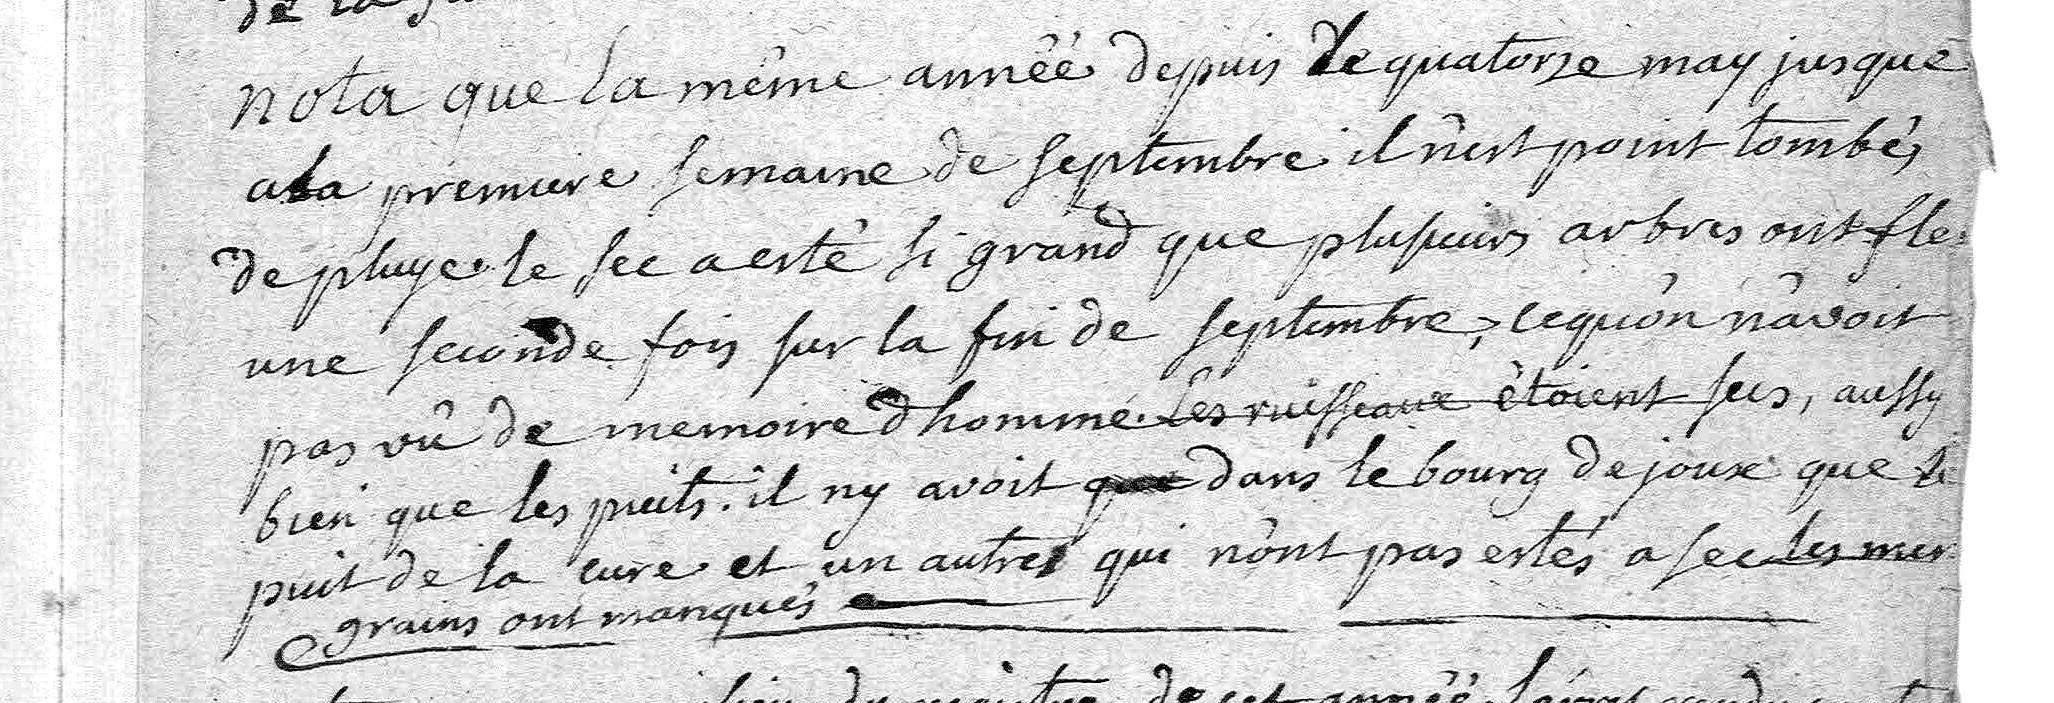 de la
nota que la même année depuis le quatorze may jusque
a la premiere semaine de septembre il n'est point tombés
de pluye. le sec a esté si grand que plusieurs arbres ont fle
une seconde fois sur la fin de septembre, ce qu'on n'avoit
pas vû de memoire d'homme. Les ruisseaux étoient secs, aussy
bien que les puits. il ny avoit dans le bourg de joux que le
puit de la cure et un autre qui n'ont pas estés a sec les men
grains ont manqués
de cet année